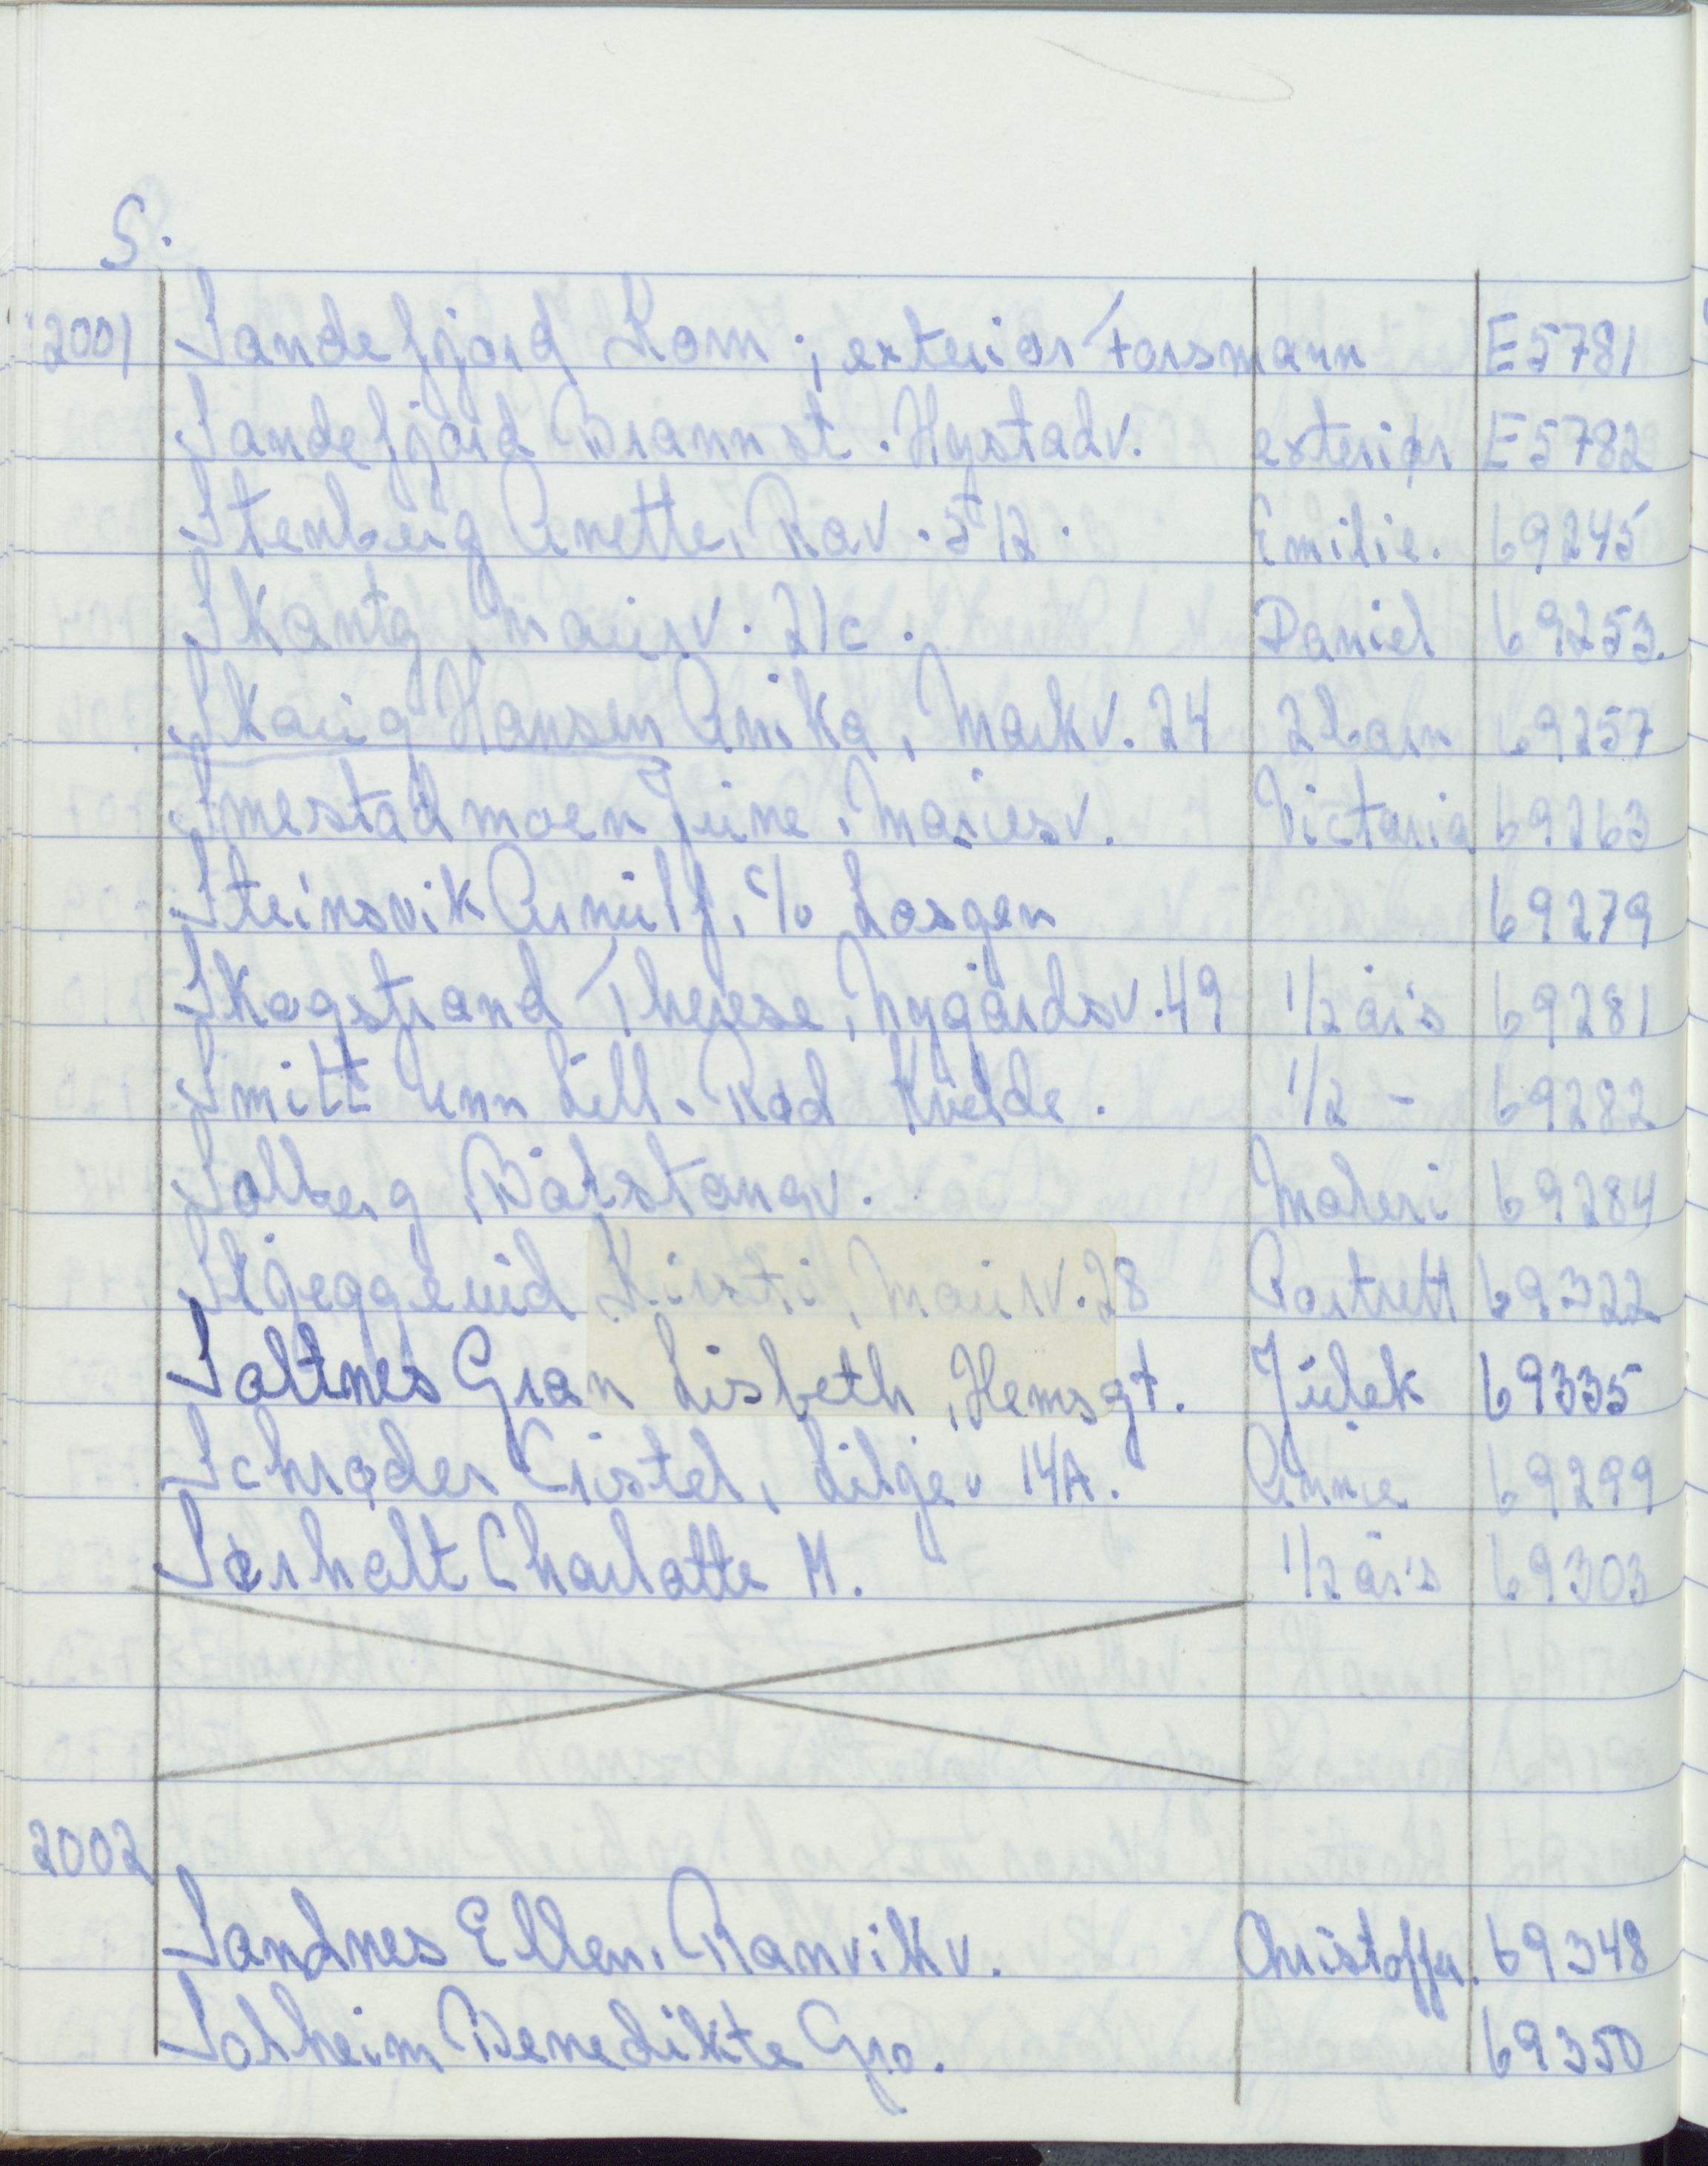 S.
2001 Sandefjord Kom; exteriør Forsmann E5781
Sandefjord Brannst. Hystadv. exteriør E5782
Stenberg Anette, Rav. 512. Emilie. 69245
Skantg, 21c. Daniel 69253.
Skaug Hansen Anika, Markv. 24 2 barn 69257
Smestadmoen June, Mariesv. Victoria 69263
Steinsvik Arnulf, c/o Losgen 69279
Skogstrand Therese, Nygårdsv. 49 1/2 års 69281
Smitt Unn Lill. Rød Kvelde. 1/2 - 69282
Solberg Båtstangv. Maleri 69284
Skjeggerud Kirsti, 28 Portrett 69322
Saltnes Gran Lisbeth, Hemsgt. Julek 69335
Schrøder Cristel, Liljev 14A. Annie 69299
Sørholt Charlotte M. 1/2 års 69303
2002
Sandnes Ellen, Ranvikv. Christoffer. 69348
Solheim Benedikte Gro. 69350